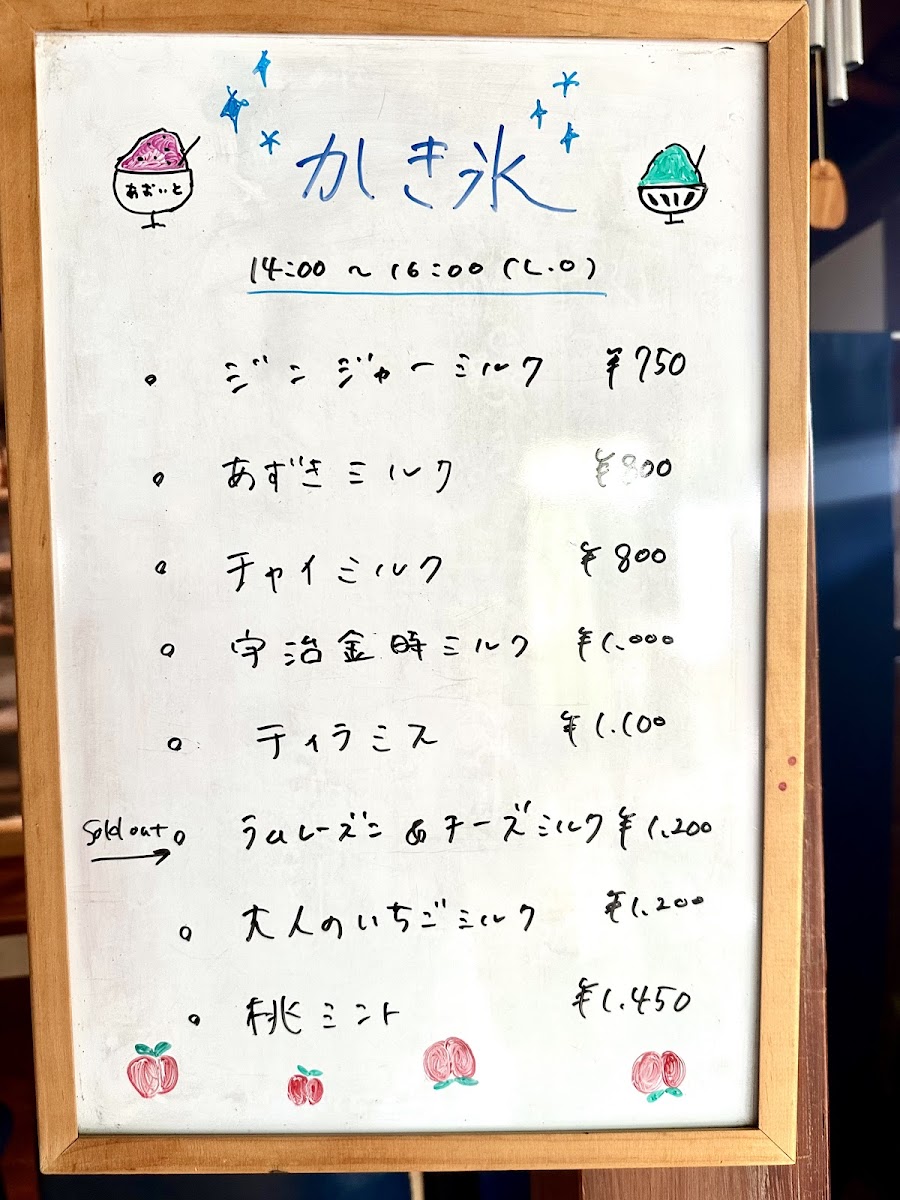 かき氷
あおいと
14:00 ~ 16:00 (L.O)
。 ジンジャーミルク ¥750
。 あずきミルク ¥800
。 チャイミルク ¥800
。 宇治金時ミルク ¥1.000
。 ティラミス ¥1.100
Sold out → 。 ラムレーズン&チーズミルク ¥1.200
。 大人のいちごミルク ¥1.200
。 桃ミント ¥1.450